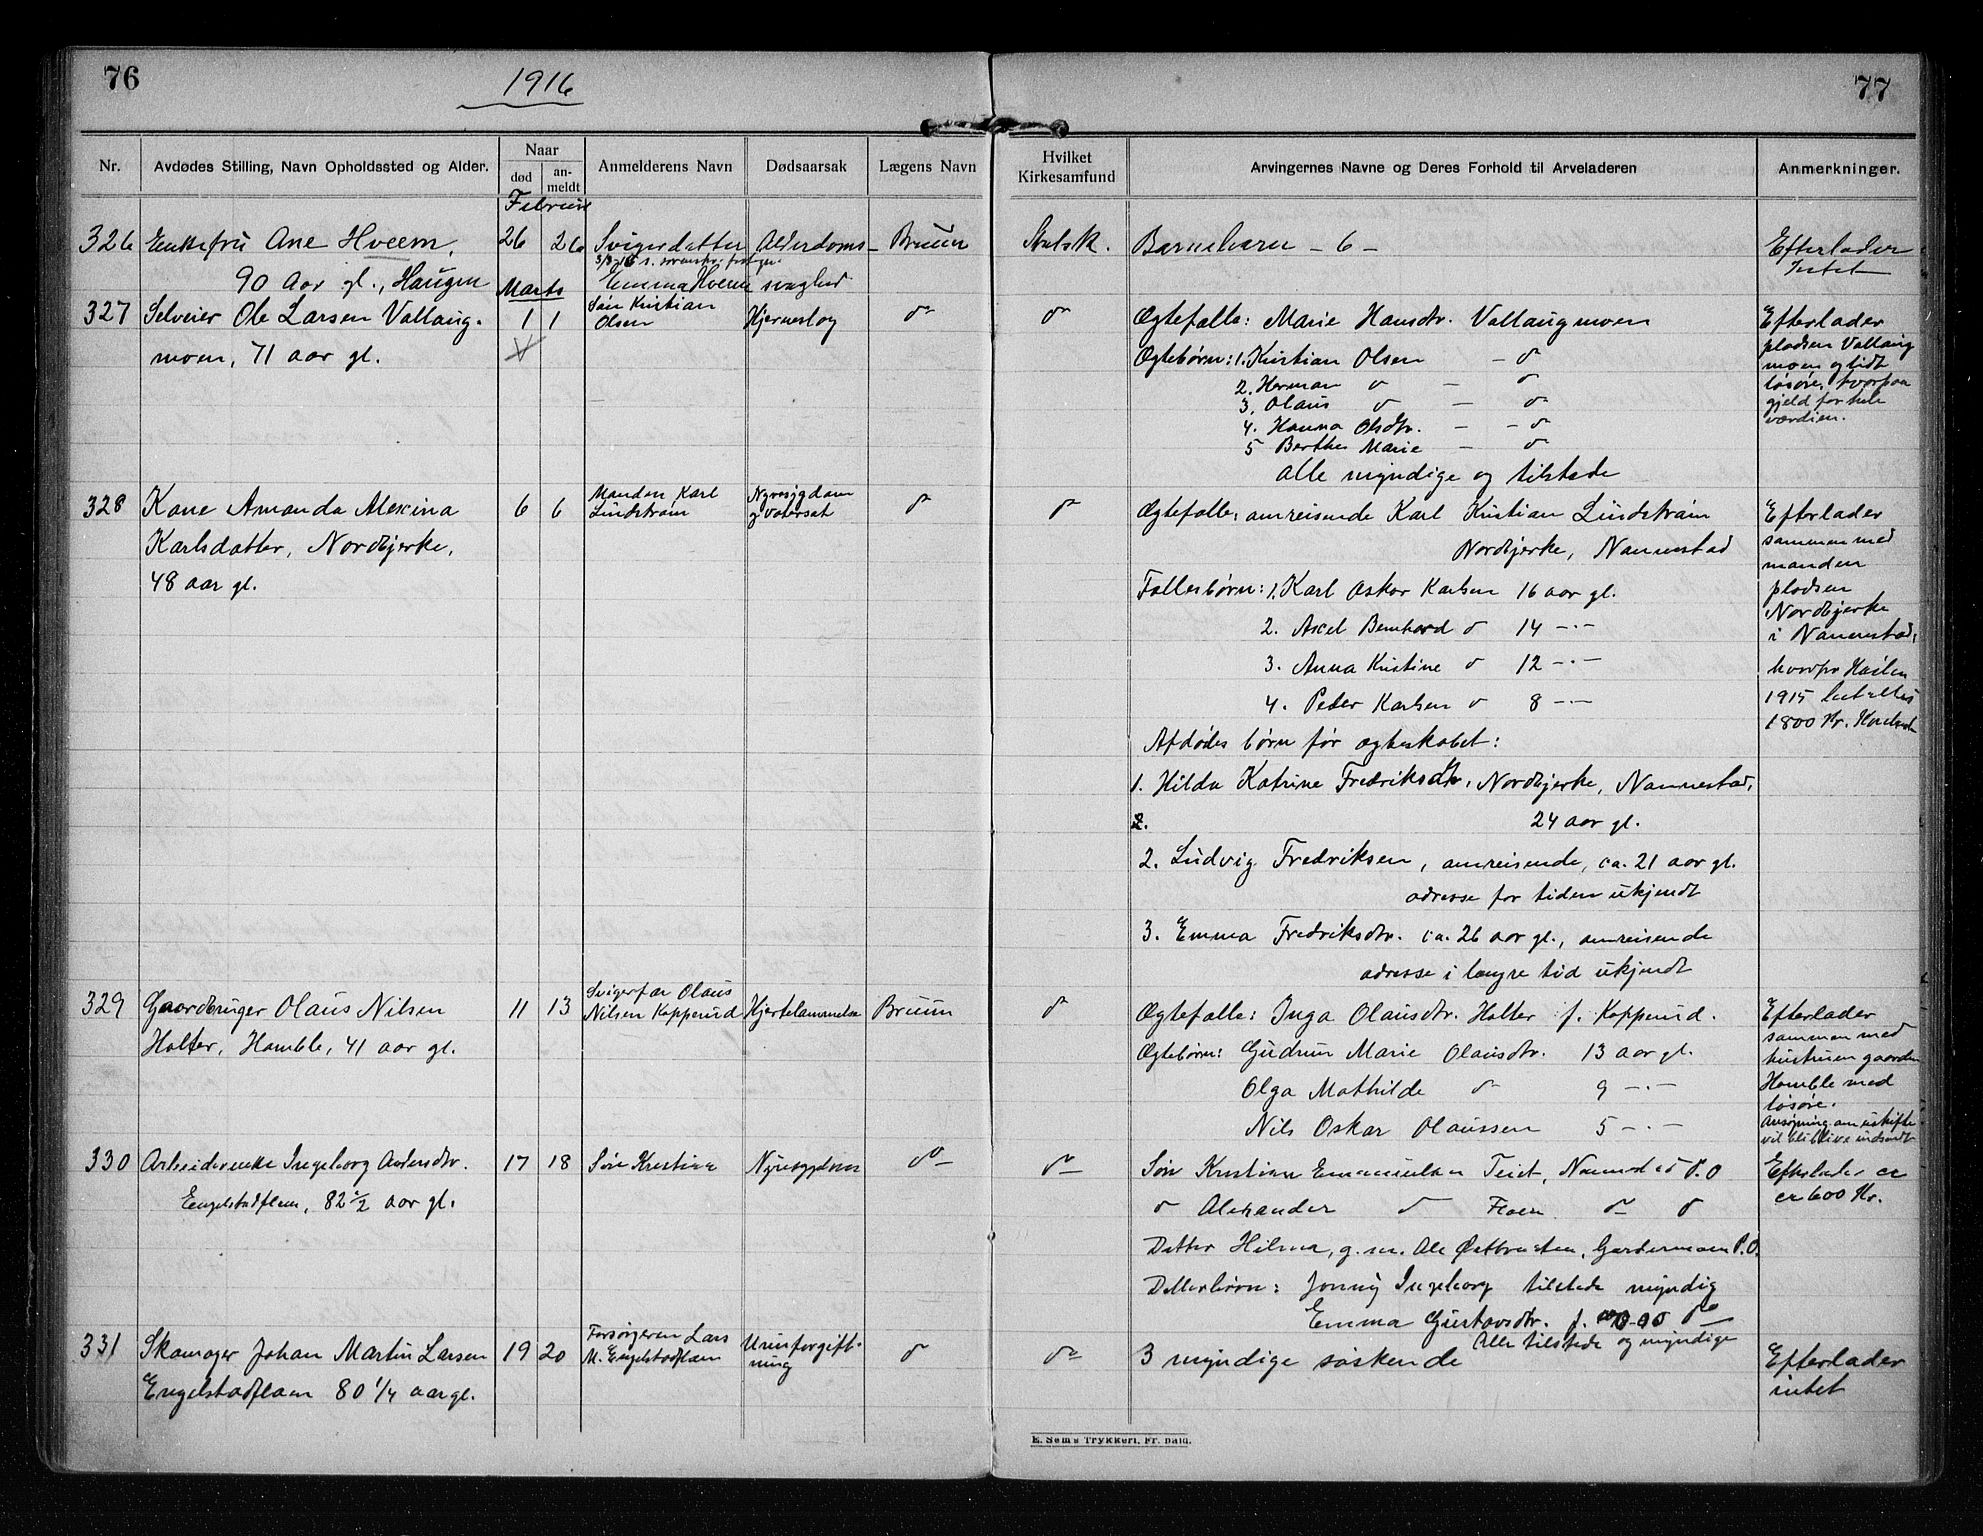 76
1916
77
Nr.
Avdødes Stilling, Navn Opholdssted og Alder.
Naar
død
an-
meldt
Anmelderens Navn
Dødsaarsak
Lægens Navn
Hvilket
Kirkesamfund
Arvingernes Navne og Deres Forhold til Arveladeren
Anmerkninger.
Februar
326 Enkefru Ane Hveem, 26 26 Svigerdatter Alderdoms- Bruun Statsk. Barnebarn - 6 - Efterlader
90 Aar gl., Haugen Emma Hveem svaghed intet
Marts
327 Selveier Ole Larsen Vallaug- 1 1 Søn Kristian Hjerneslag do do Ægtefælle: Marie Hansdtr. Vallaugmoen Efterlader
Olsen
moen, 71 aar gl. Ægtebørn: 1. Kristian Olsen - do pladsen Vallaug
2. Herman do - do moen og lidt
3. Olaus do - do løsøre, hvorpaa
4. Hanna Olsdtr. - - do gjeld for hele
5 Berthe Marie - do værdien.
alle myndige og tilstede
328 Kone Amanda Alexina 6 6 Manden Karl Nyresygdom do do Ægtefælle: omreisende Karl Kristian Lindstrøm Efterlader
Lindstrøm og vatersot
Karlsdatter, Nordbjerke, Nordbjerke, Nannestad sammen med
48 aar gl. manden
Fællesbørn: 1. Karl Oskar Karlsen 16 aar gl. pladsen
Nordbjerke
2. Axel Bernhard do 14 -"- i Nannestad,
3. Anna Kristine do 12 -"- hvorfor Høsten
4. Peder Karlsen do 8 -"- 1915 betaltes
1800 Kr.
Afdødes børn før ægteskabet:
1. Hilda Katrine Fredriksdtr, Nordbjerke, Nannestad,
2. 24 aar gl.
2. Ludvig Fredriksen, omreisende, ca. 21 aar gl.
adresse for tiden ukjendt
3. Emma Fredriksdtr. ca. 26 aar gl., omreisende
adresse i længre tid ukjendt
329 Gaardbruger Olaus Nilsen 11 13 Svigerfar Olaus Hjertelammelse Bruun do Ægtefælle: Inga Olausdtr. Holter f. Kopperud. Efterlader
Nilsen Kopperud
Holter, Homble, 41 aar gl. Ægtebørn: Gudrun Marie Olausdtr. 13 aar gl. sammen med
hustruen gaarden
Olga Mathilde do 9 -"- Homble med
løsøre.
Nils Oskar Olaussen 5 -"- Ansøgning om uskifte
vil bli blive indsendt
330 Arbeiderenke Ingeborg Andersdtr. 17 18 Søn Kristian Nyresygdom do do Søn Kristian Emanuelsen Teiet, Nannestad P.O Efterlader ca
Engelstadflaen, 82 1/2 aar gl. do Alexander do Floen do do ca 600 Kr.
Datter Hilma, g.m. Ole Østbraaten, Gardermoen P.O.
Datterbørn: Jonny Ingeborg tilstede myndig
Emma Gustavsdtr. f. do
Alle tilstede og myndige
331 Skomager Johan Martin Larsen 19 20 Forsørgeren Lars Urinforgift- do do 3 myndige søskende Efterlader
M. Engelstadflaen ning
Engelstadflaen 80 1/4 aar gl. intet
E. Sem's Trykkeri, Fr. hald.